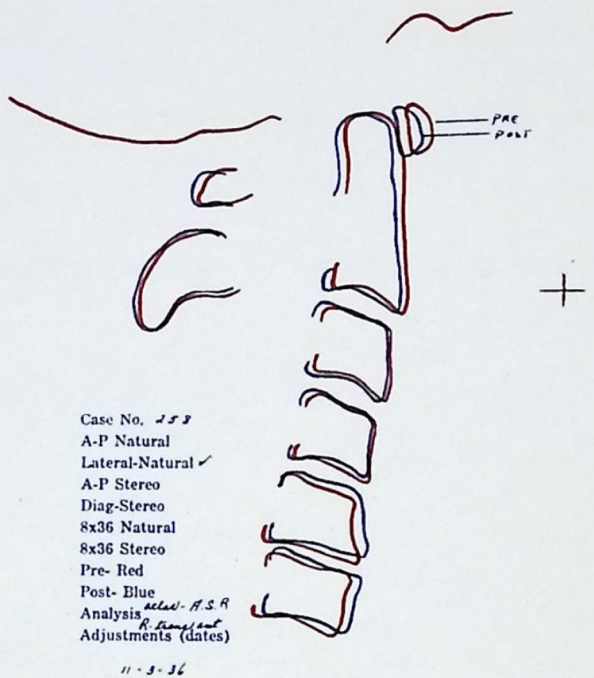 PRE
POST
Case No. 258
A-P Natural
Lateral-Natural ✓
A-P Stereo
Diag-Stereo
8x36 Natural
8x36 Stereo
Pre- Red
Post- Blue
Analysis atlas - A.S.R
R.
Adjustments (dates)
11-3-36